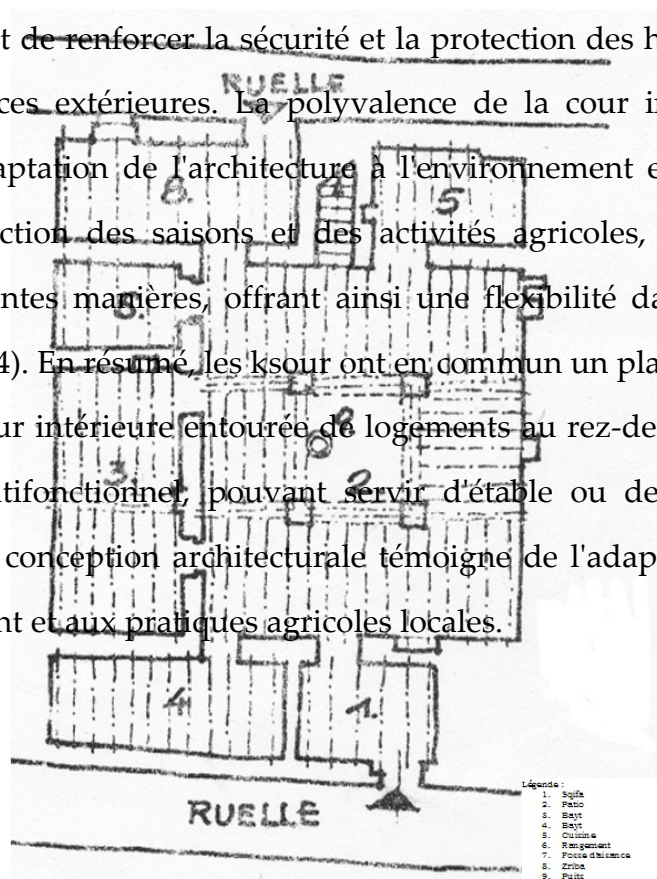 t de renforcer la sécurité et la protection des h
RUELLE
ces extérieures. La polyvalence de la cour in
aptation de l'architecture à l'environnement e
8.
5
ction des saisons et des activités agricoles,
ntes manières, offrant ainsi une flexibilité da
4). En résumé, les ksour ont en commun un pla
ur intérieure entourée de logements au rez-de
3
2
ltifonctionnel, pouvant servir d'étable ou de
conception architecturale témoigne de l'adap
nt et aux pratiques agricoles locales.
4
1.
RUELLE
Légende :
1. Sqifa
2. Patio
3. Bayt
4. Bayt
5. Cuisine
6. Rangement
7. Fosse d'aisance
8. Zriba
9. Puits